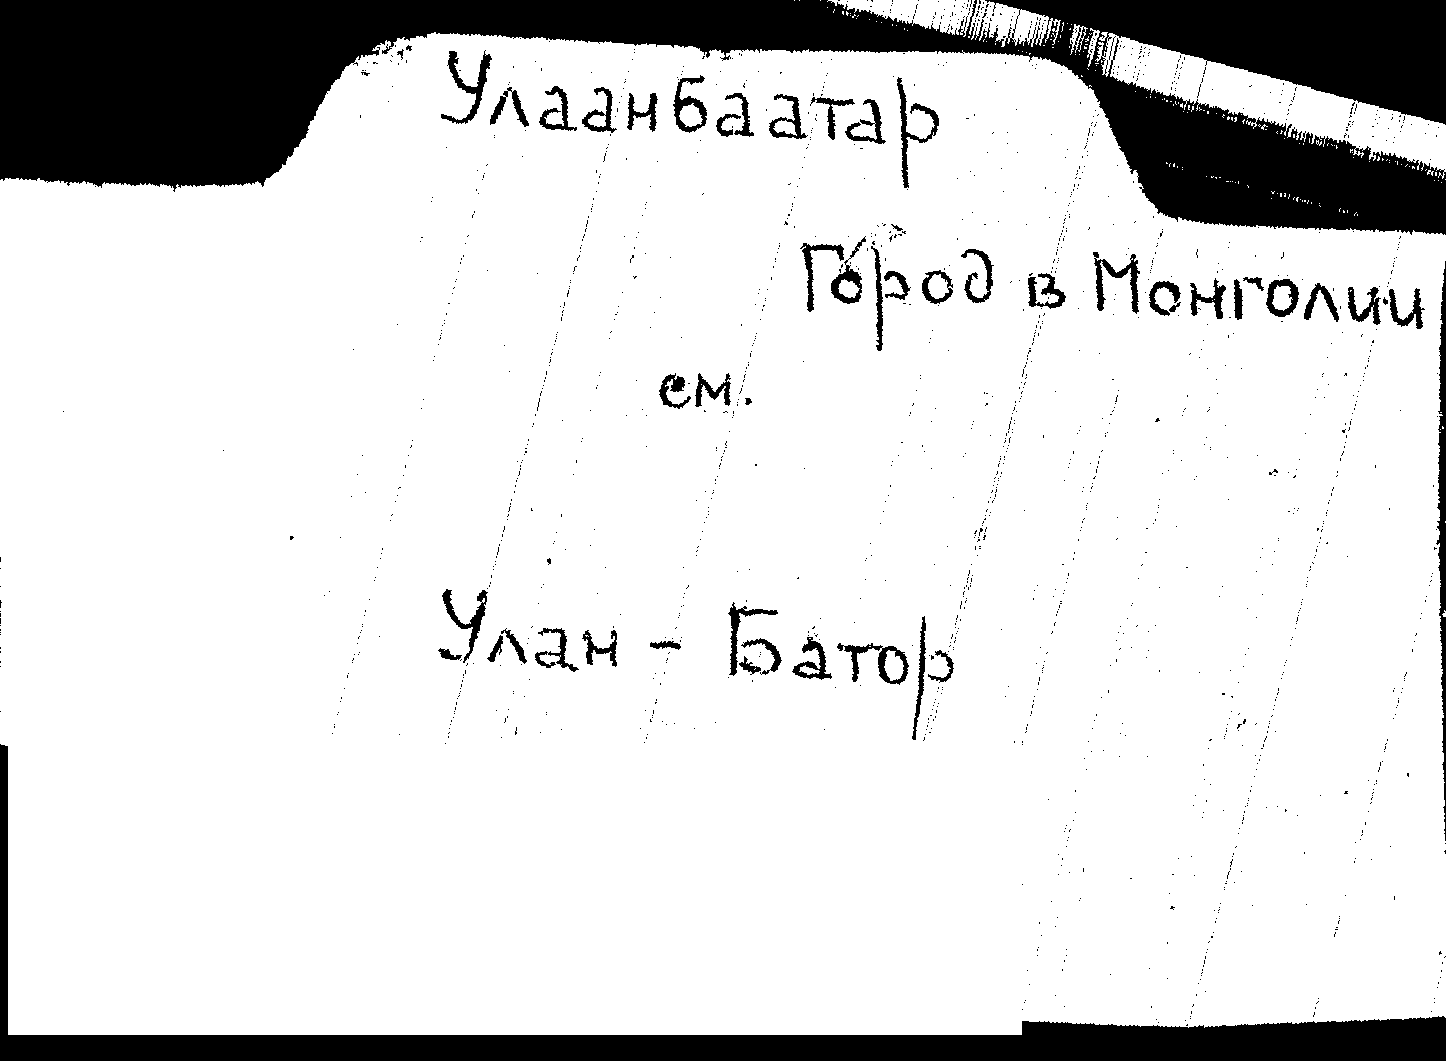 Улаанбаатар
Город в Монголии
см.
Улан - Батор